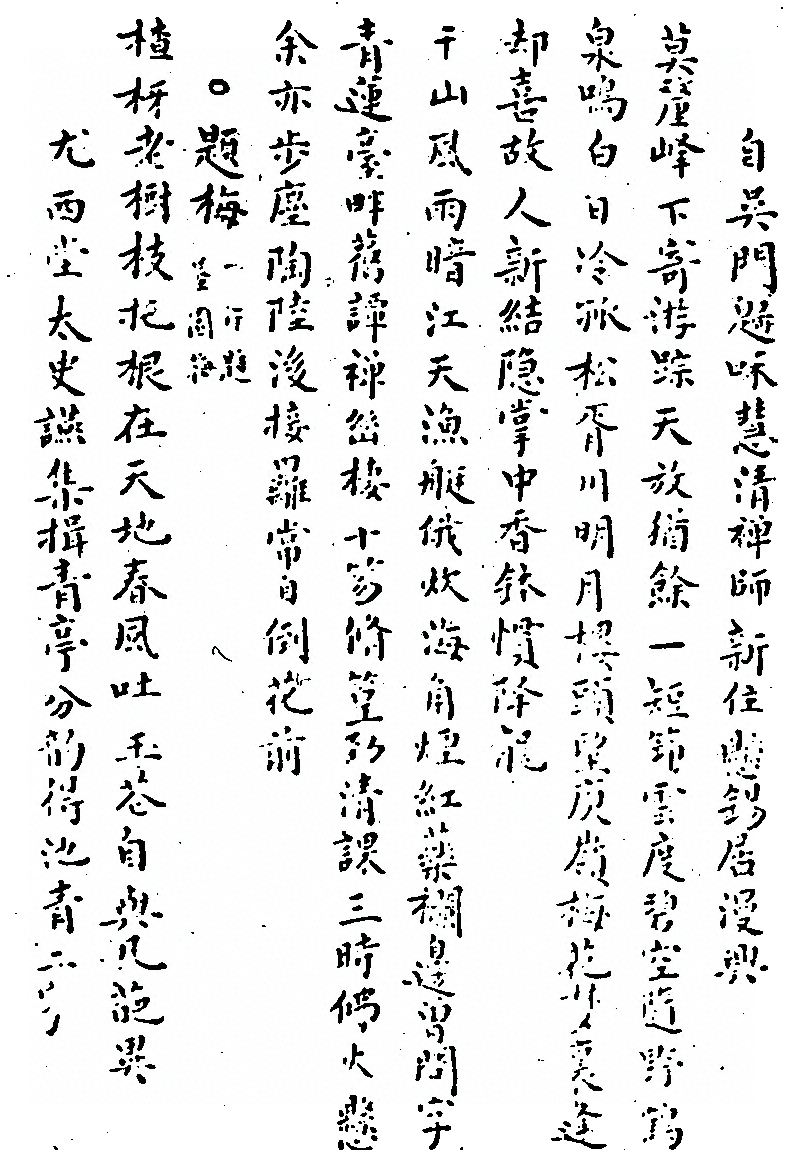 自吳門歸咏慧清禪師新住懸錫居漫興
莫釐峰下寄游踪天放猶餘一短筇雲度碧空隨野鶴
泉鳴白日冷孤松胥川明月樓頭望庾嶺梅花夢裏逢
却喜故人新結隐掌中香鉢慣降龍
千山風雨暗江天漁艇俄炊海角煙紅藥欄邊曾問字
青蓮臺畔舊譚禅峦棲十笏脩篁列清課三時偶火懸
余亦步塵陶陸後接羅常自倒花前
○題梅一行題墨圖梅
楂枒老樹枝托根在天地春風吐玉苍自與凡葩異
尤西堂太史讌集揖青亭分韵得池青二字